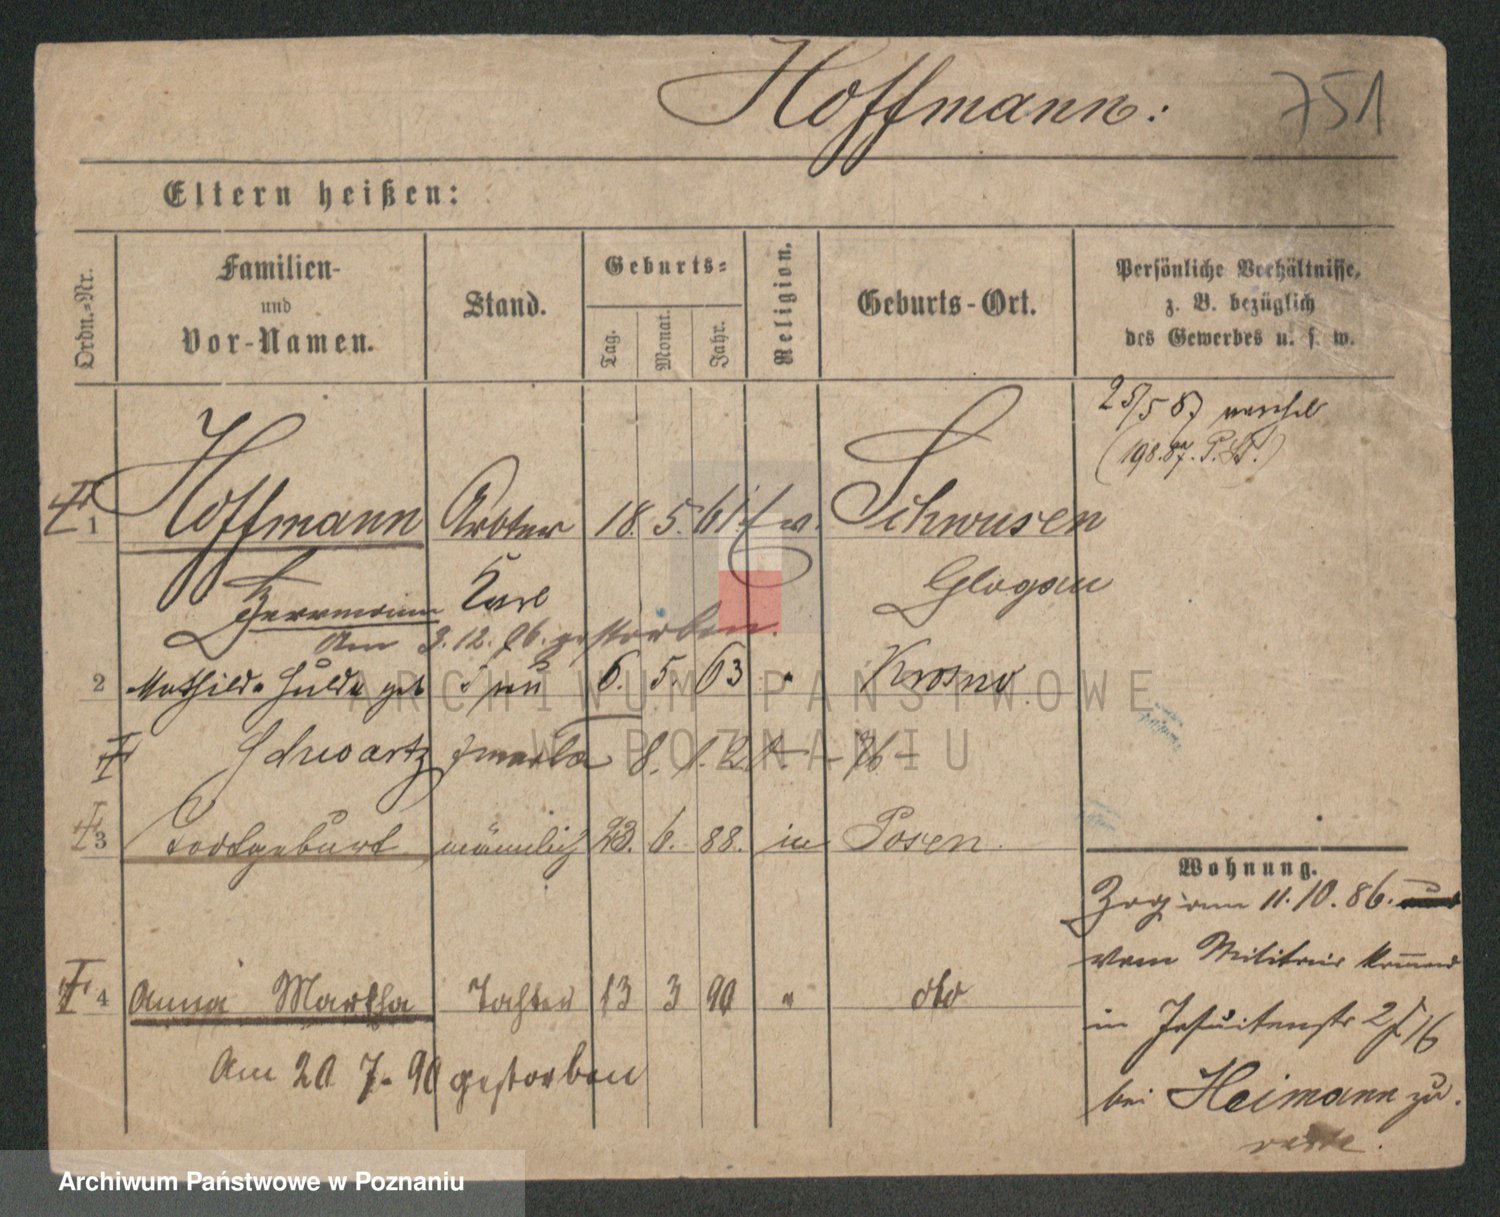 Hoffmann: 751
Eltern heißen:
Ordn.-Nr.
Familien-
und
Vor-Namen.
Stand.
Geburts-
Tag.
Monat.
Jahr.
Religion.
Geburts-Ort.
Persönliche Verhältnisse,
z. B. bezüglich
des Gewerbes u. s. w.
25/5 87
(198.87. P. )
1 Hoffmann Arbter 18. 5. 61. ev. Schwusen
Herrmann Karl Glogau
Am 3.12.96. gestorben.
2 Mathilde Hulda geb Frau 6. 5. 63 " Krosno
Schwartz 8. 1. 76
3 Todtgeburt männlich 23. 6. 88. in Posen.
4 Anna Martha Tochter 13 3 90 " dto
Am 20 7. 90 gestorben
Wohnung.
Zog am 11.10.86.
vom Militair kommend
in Jesuitenstr
bei Heimann zu.
ARCHIWUM PAŃSTWOWE
W POZNANIU
Archiwum Państwowe w Poznaniu